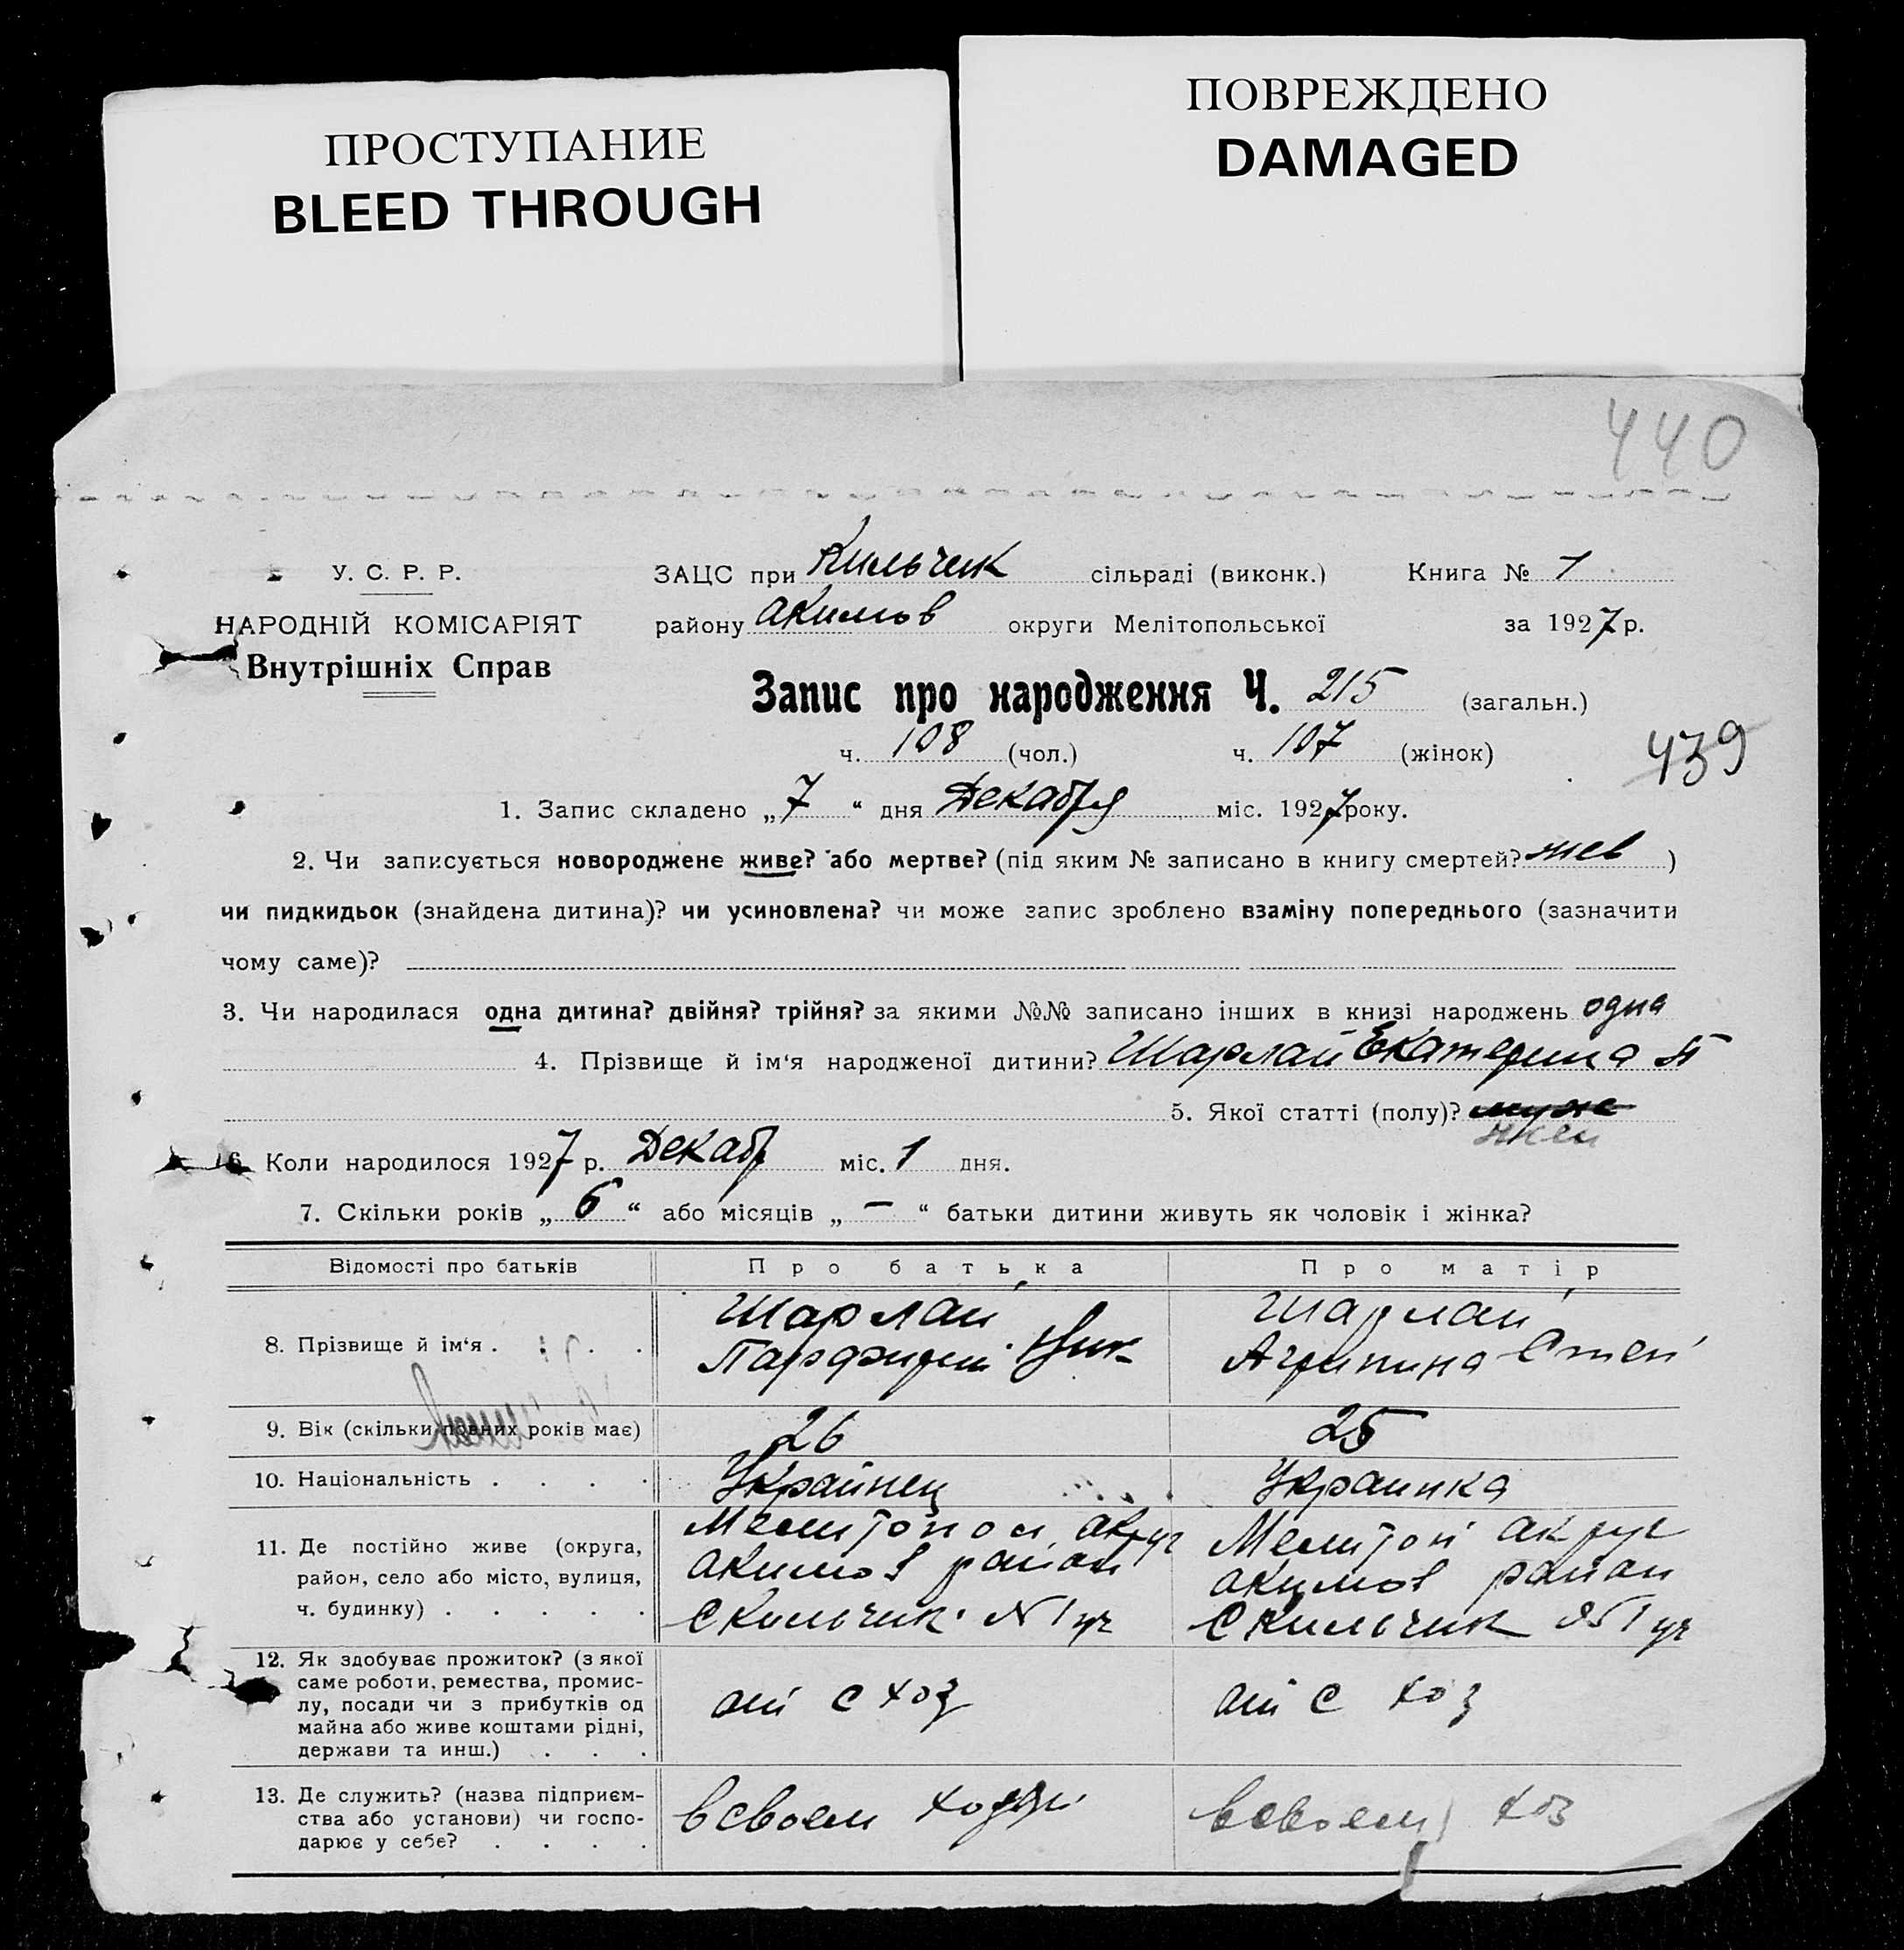 ПРОСТУПАНИЕ
BLEED THROUGH
ПОВРЕЖДЕНО
DAMAGED
440
У. С. Р. Р.
НАРОДНІЙ КОМІСАРІЯТ
Внутрішніх Справ
ЗАЦС при Кильчик сільраді (виконк.) Книга № 1
району Акимов округи Мелітопольської за 1927 р.
Запис про народження Ч. 215 (загальн.)
ч. 108 (чол.) ч. 107 (жінок)
439
1. Запис складено „ 7 “ дня Декабря міс. 1927 року.
2. Чи записується новороджене живе? або мертве? (під яким № записано в книгу смертей? )
чи пидкидьок (знайдена дитина)? чи усиновлена? чи може запис зроблено взаміну попереднього (зазначити
чому саме)?
3. Чи народилася одна дитина? двійня? трійня? за якими №№ записано інших в книзі народжень одна
4. Прізвище й ім‘я народженої дитини? Шарлай Екатерина П
5. Якої статті (полу)? муже
жен
6. Коли народилося 1927 р. Декабр міс. 1 дня.
7. Скільки років „ 6 “ або місяців „ — “ батьки дитини живуть як чоловік і жінка?
Відомості про батьків Про батька Про матір
8. Прізвище й ім‘я . . . .
Шарлай
Парфирий Ник
Шарлай
Агрипина Степ
9. Вік (скільки повних років має) 26 25
10. Національність . . . . Украинец Украинка
11. Де постійно живе (округа,
район, село або місто, вулиця,
ч. будинку) . . . . .
Мелитопол округ
Акимов район
С Кильчик №1 уч
Мелитоп округ
Акимов район
С Кильчик №1 уч
12. Як здобуває прожиток? (з якої
саме роботи, ремества, промис-
лу, посади чи з прибутків од
майна або живе коштами рідні,
держави та инш.) . . .
с хоз
с хоз
13. Де служить? (назва підприєм-
ства або установи) чи госпо-
дарює у себе? . . . .
в своем
в своем хоз